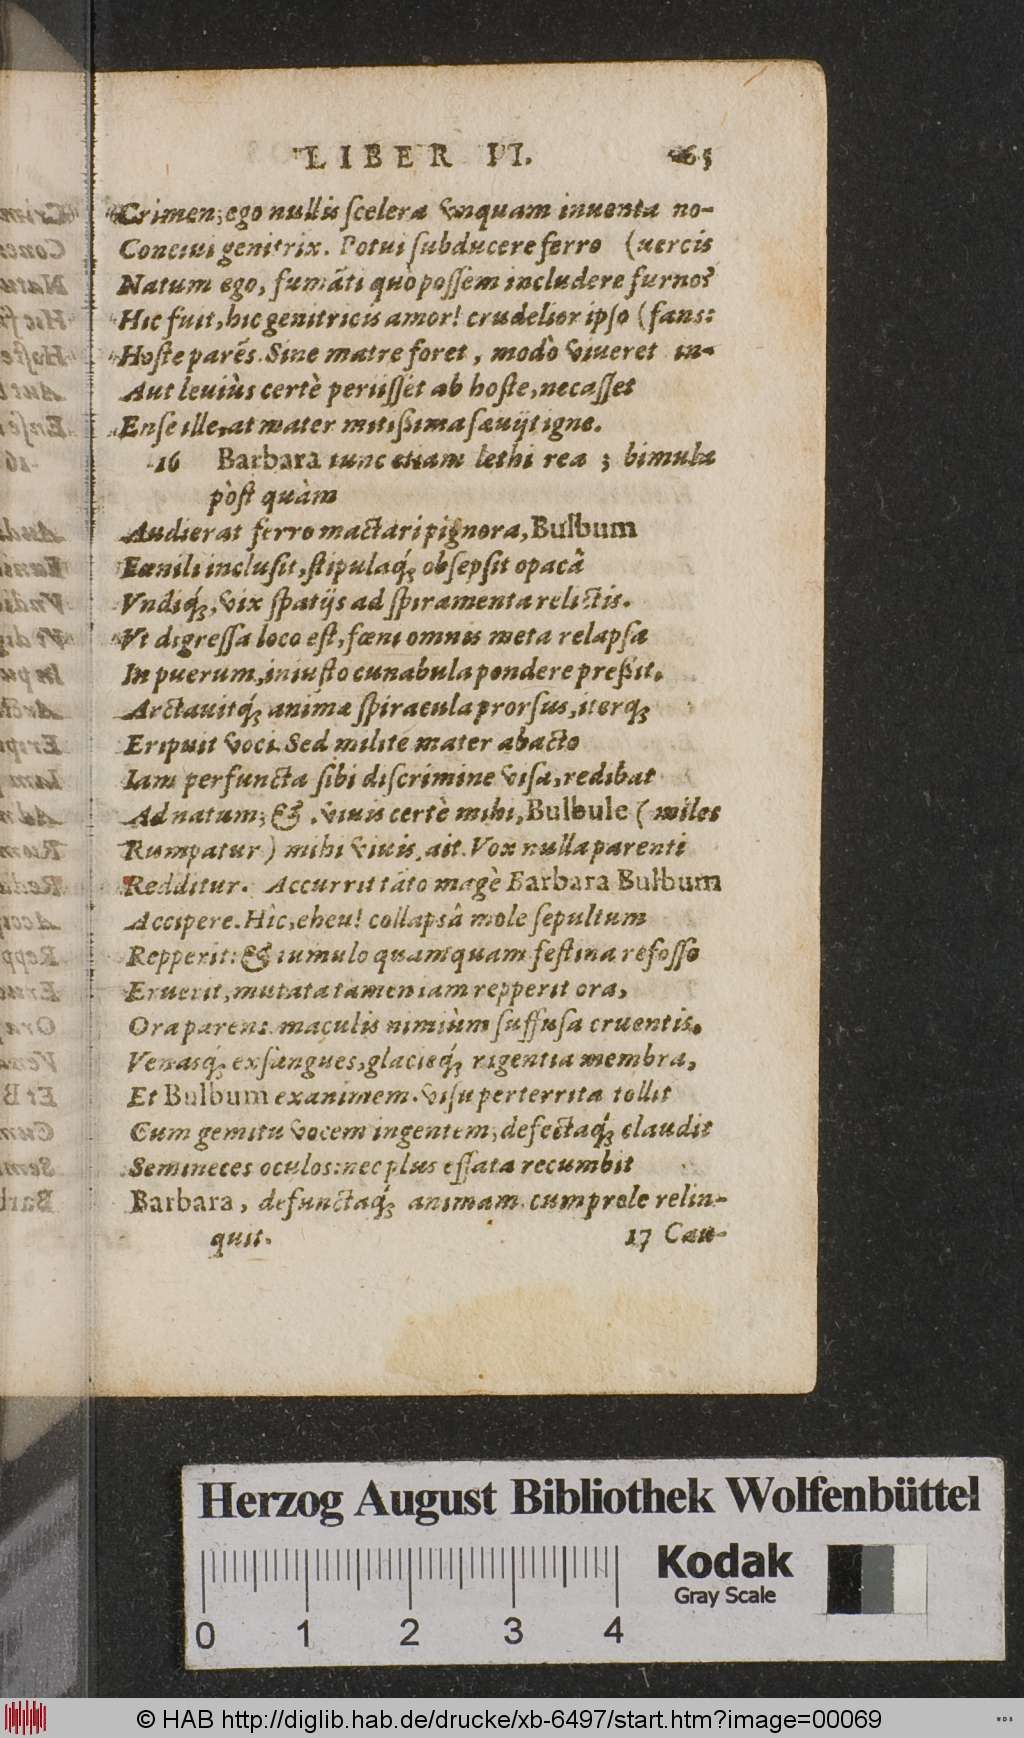 LIBER II. 65
Crimen; ego nullis scelera vnquam inuenta no-
Conciui genitrix. Potui subducere ferro (uercis
Natum ego, fumãti quò possem includere furno?
Hic fuit, hic genitricis amor! crudelior ipso (fans:
Hoste parẽs. Sine matre foret, modò viueret in-
Aut leuiùs certè periisset ab hoste, necasset
Ense ille, at mater mitißima sæuijt igne.
16 Barbara tunc etiam lethi rea; bimula
pòst quàm
Audierat ferro mactari pignora, Bulbum
Fœnili inclusit, stipulaq́; obsepsit opacâ
Vndiq́;, vix spatijs ad spiramenta relictis.
Vt digressa loco est, fœni omnis meta relapsa
In puerum, iniusto cunabula pondere preßit.
Arctauitq́; animæ spiracula prorsus, iterq́;
Eripuit voci. Sed milite mater abacto
Iam perfuncta sibi discrimine visa, redibat
Ad natum; & , viuis certè mihi, Bulbule (miles
Rumpatur) mihi viuis, ait. Vox nulla parenti
Redditur. Accurrit tãto magè Barbara Bulbum
Accipere. Hîc, eheu! collapsâ mole sepultum
Repperit: & tumulo quamquam festina refosso
Eruerit, mutata tamen iam repperit ora,
Ora parens maculis nimiùm suffusa cruentis.
Venasq́; exsangues, glacieq́; rigentia membra,
Et Bulbum exanimem. visu perterrita tollit
Cum gemitu vocem ingentem, defectaq́; claudit
Semineces oculos: nec plus effata recumbit
Barbara, defunctaq́; animam cum prole relin-
quit. 17 Cau-
Herzog August Bibliothek Wolfenbüttel
Kodak
Gray Scale
0 1 2 3 4
© HAB http://diglib.hab.de/drucke/xb-6497/start.htm?image=00069